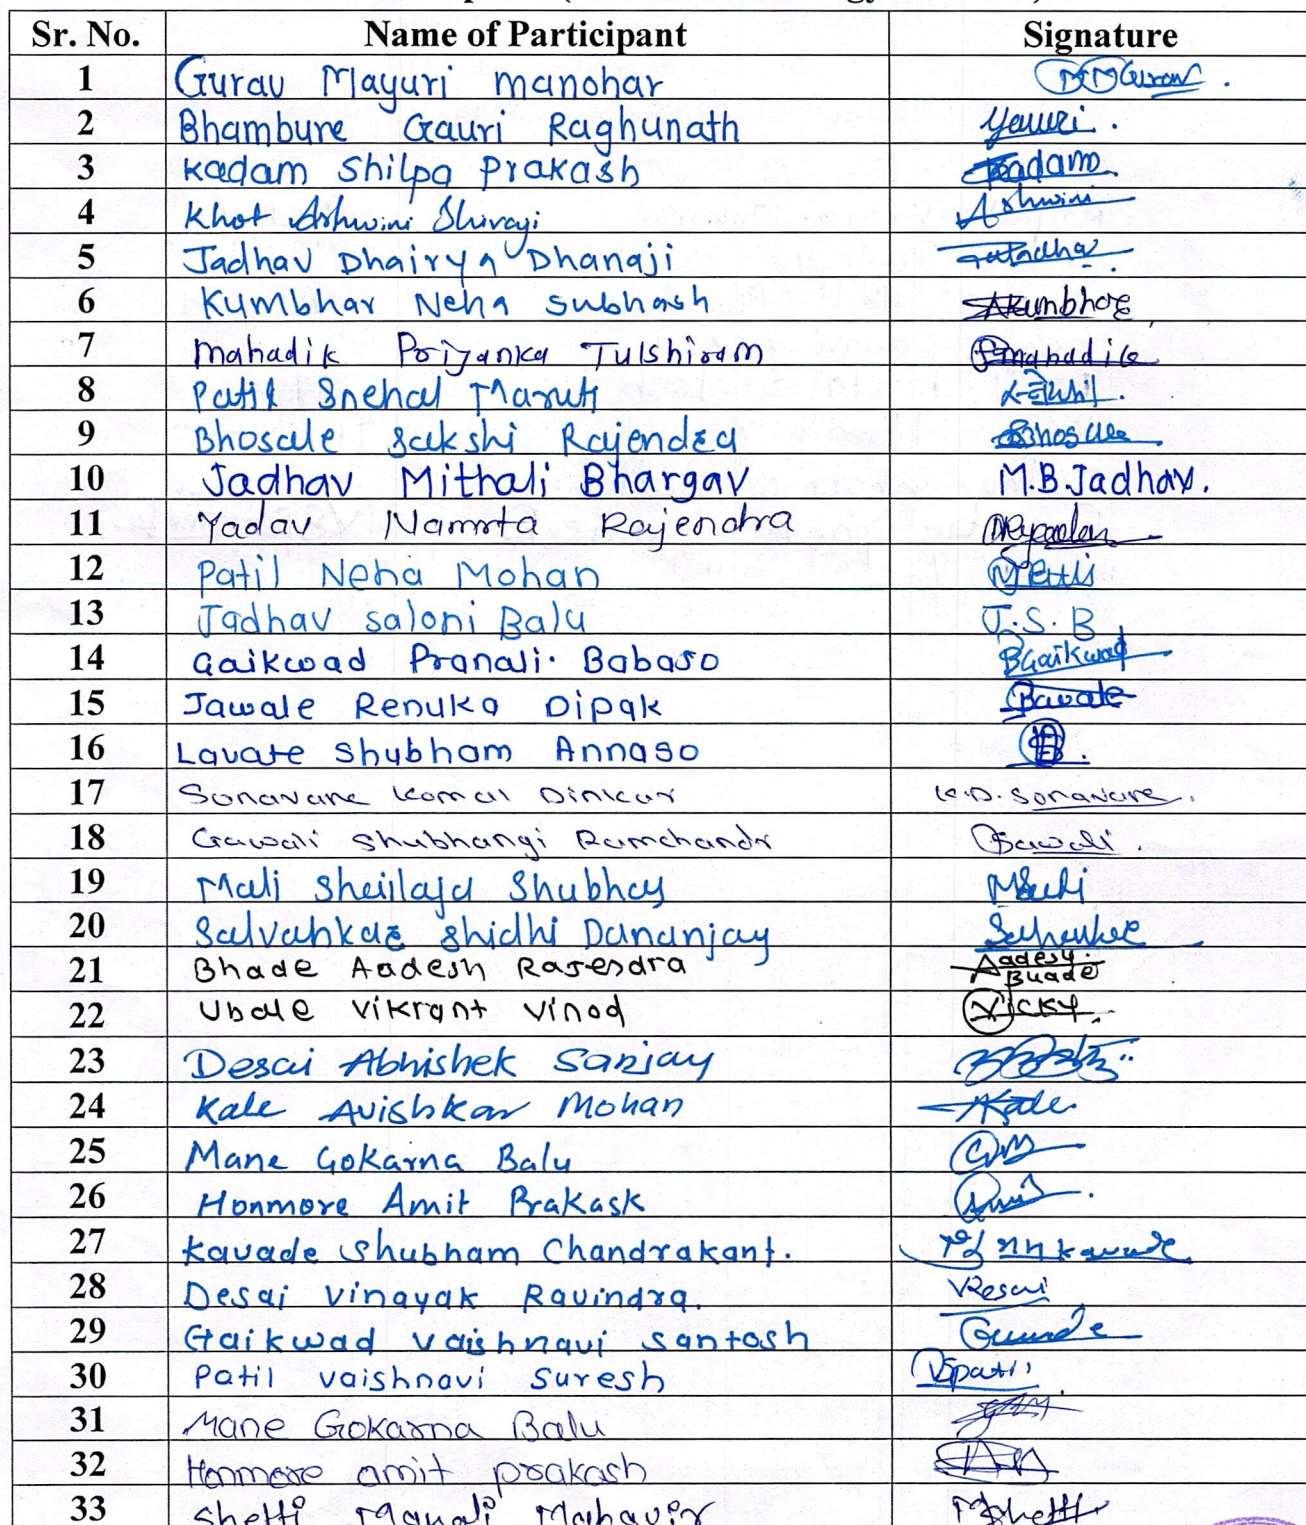 Sr. No. Name of Participant Signature
1 Gurav Mayuri manohar MMGurav.
2 Bhambure Gauri Raghunath Gauri.
3 Kadam Shilpa Prakash Kadam
4 Khot Ashwini Shivaji Ashwini
5 Jadhav Dhairya Dhanaji
6 Kumbhar Neha Subhash Kumbhar
7 Mahadik Priyanka Tulshiram Pmahadik
8 Patil Snehal Maruti
9 Bhosale Sakshi Rajendra Bhosale
10 Jadhav Mithali Bhargav M.B.Jadhav.
11 Yadav Namrta Rajendra
12 Patil Neha Mohan
13 Jadhav saloni Balu J.S.B
14 Gaikwad Pranali. Babaso Gaikwad
15 Jawale Renuka Dipak
16 Lavate Shubham Annaso
17 Sonavane Komal Dinkar K.D. Sonavane.
18 Gawali Shubhangi Ramchandr Gawali.
19 Mali Shailaja Shubhas
20 Salvankar Shidhi Dananjay
21 Bhade Aadesh Rajesdra Aadesh Bhade
22 Ubale Vikrant Vinod Vicky.
23 Desai Abhishek Sanjay
24 Kale Avishkar Mohan AKale.
25 Mane Gokarna Balu
26 Honmore Amit Prakask
27 Kavade Shubham Chandrakant. kavade
28 Desai Vinayak Ravindra. VResai
29 Gaikwad Vaishnavi Santosh
30 Patil vaishnavi Suresh VSpatil
31 Mane Gokarna Balu
32 Honmore amit prakash
33 Shetti Manali Mahavir MShetti